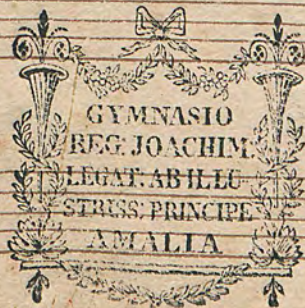 GYMNASIO
REG: JOACHIM:
LEGAT: AB ILLU
STRISS: PRINCIPE
AMALIA